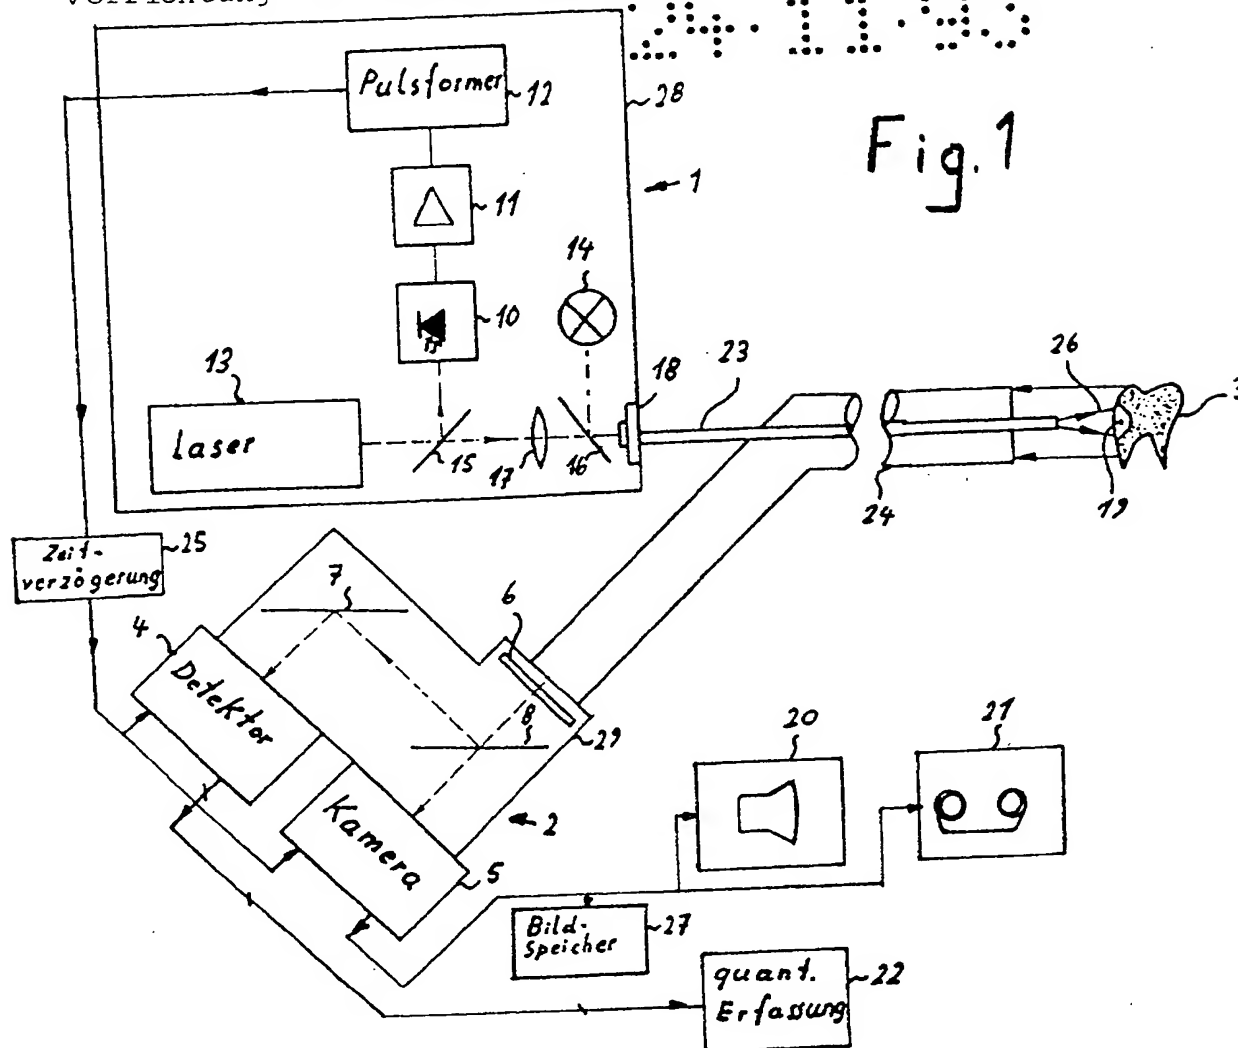 24·11·93
Fig.1
Pulsformer
12
28
11
1
14
10
13
Laser
15
17
16
18
23
26
3
19
24
Zeit-
verzögerung
25
7
6
4
Detektor
8
29
20
21
Kamera
2
5
Bild-
Speicher
27
quant.
Erfassung
22